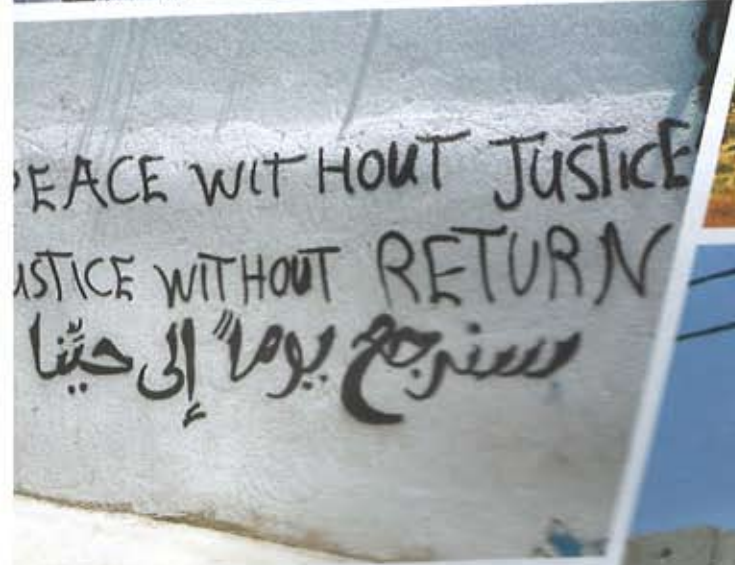 PEACE WITHOUT JUSTICE
USTICE WITHOUT RETURN
سنرجع يوماً إلى حيِّنا